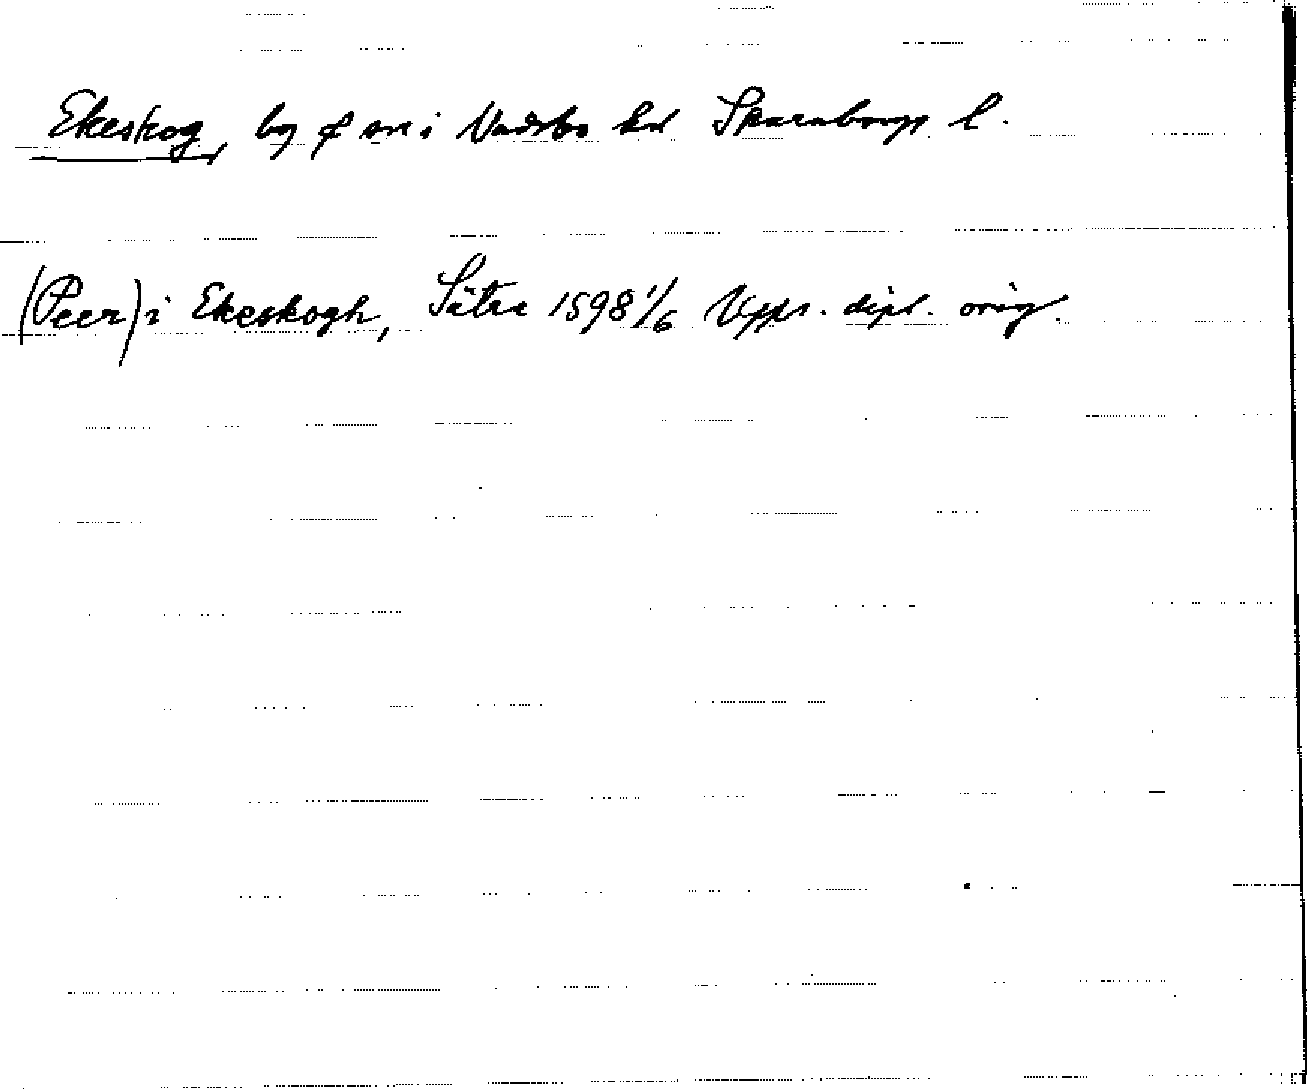 Ekeskog, by o sn i Vadsbo hd Skaraborgs l.
(Peer) i Ekeskogh, Sätra 1598 1/6 Upps. dipl. orig.